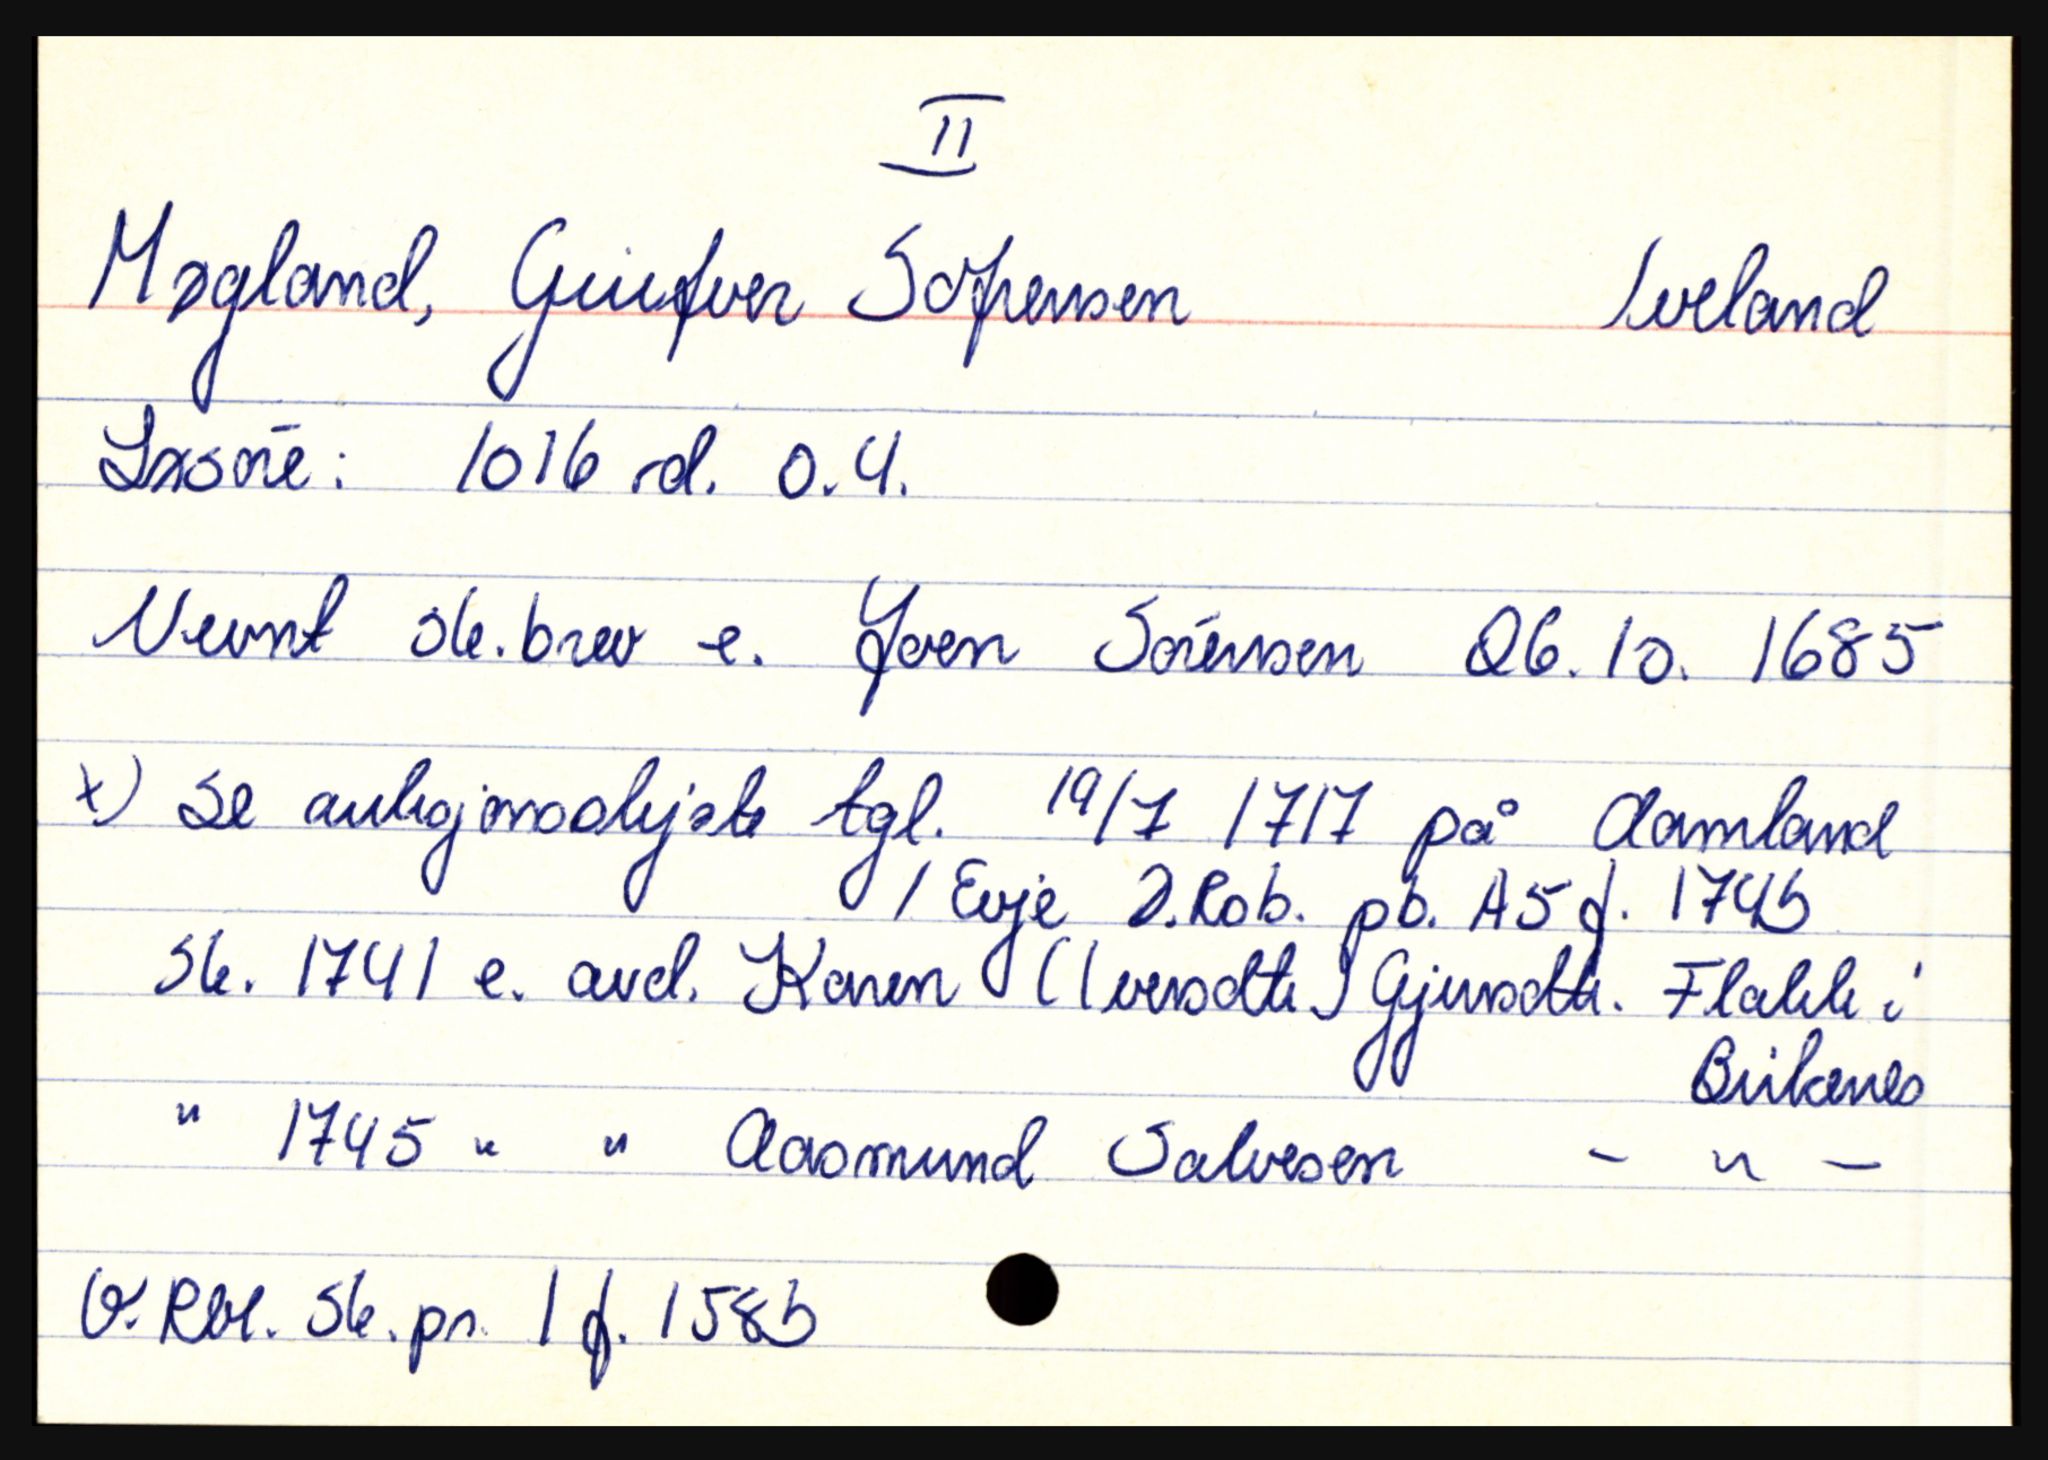 II
Mægland, Giufver Söfrensen Iveland
Løsöre: 1016 rd. 0.4.
Nevnt sk.brev e. Yfver Sörensen 26.10. 1685
x) Se auksjonsskjøte tgl. 19/7 1717 på Aamland
i Evje D.Rob. pb. A5 f. 174b
Sk. 1741 e. avd. Karen (Iversdtr.) Gjursdtr. Flakk i
Birkenes
" 1745 " " Aasmund Salvesen - " -
V. Rbl. Sk.pr. 1 f. 158b